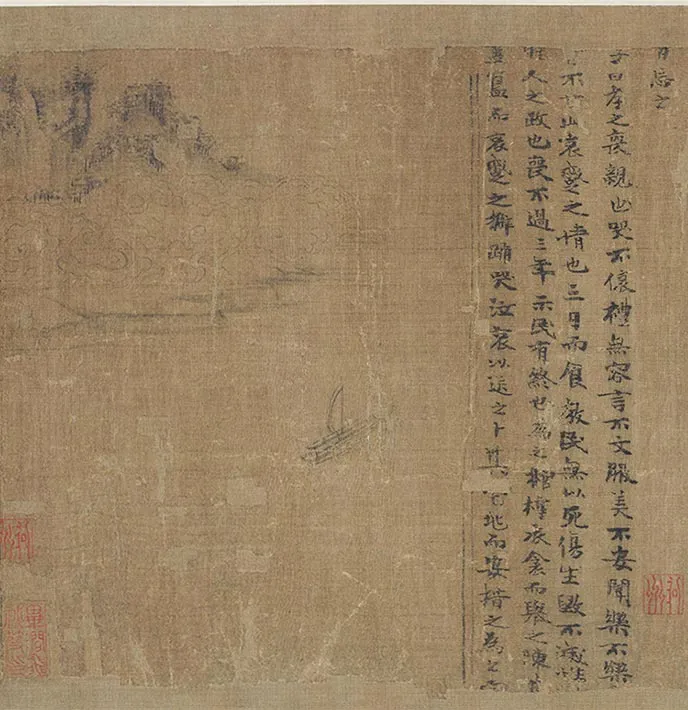 日忘之
子曰孝之喪親也哭不偯禮無容言不文服美不安聞樂不樂
不甘此哀慼之情也三日而食教民無以死傷生毀不滅性
人之政也喪不過三年示民有終也為之棺椁衣衾而舉之陳其
簋而哀慼之擗踊哭泣哀以送之卜其宅兆而安措之為之